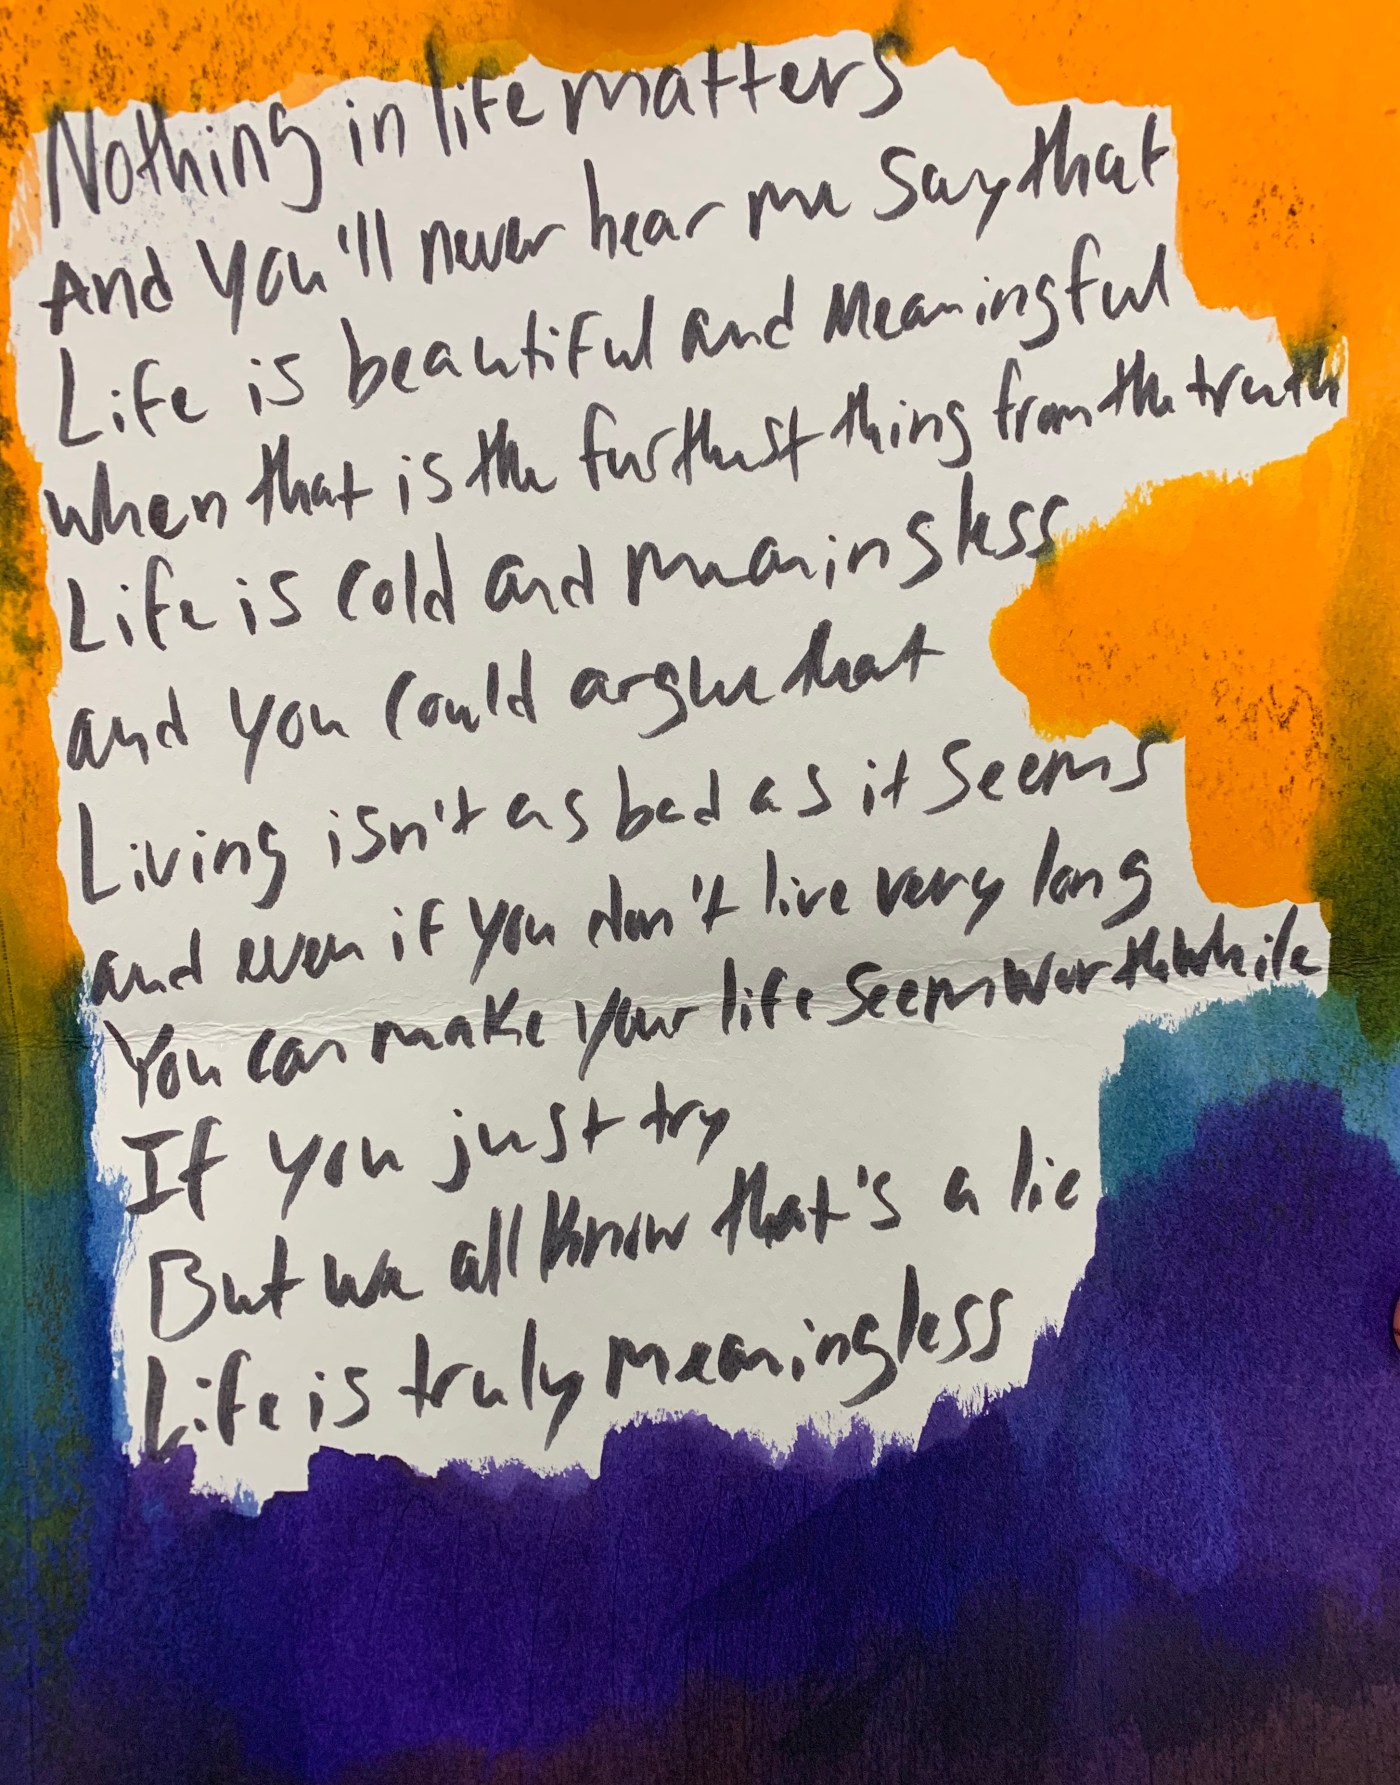 Nothing in life matters
And you'll never hear me say that
Life is beautiful and meaningful
when that is the furthest thing from the truth
Life is cold and meaningless
and you could argue that
Living isn't as bad as it seems
and even if you don't live very long
You can make your life seem worthwhile
If you just try
But we all know that's a lie
Life is truly meaningless